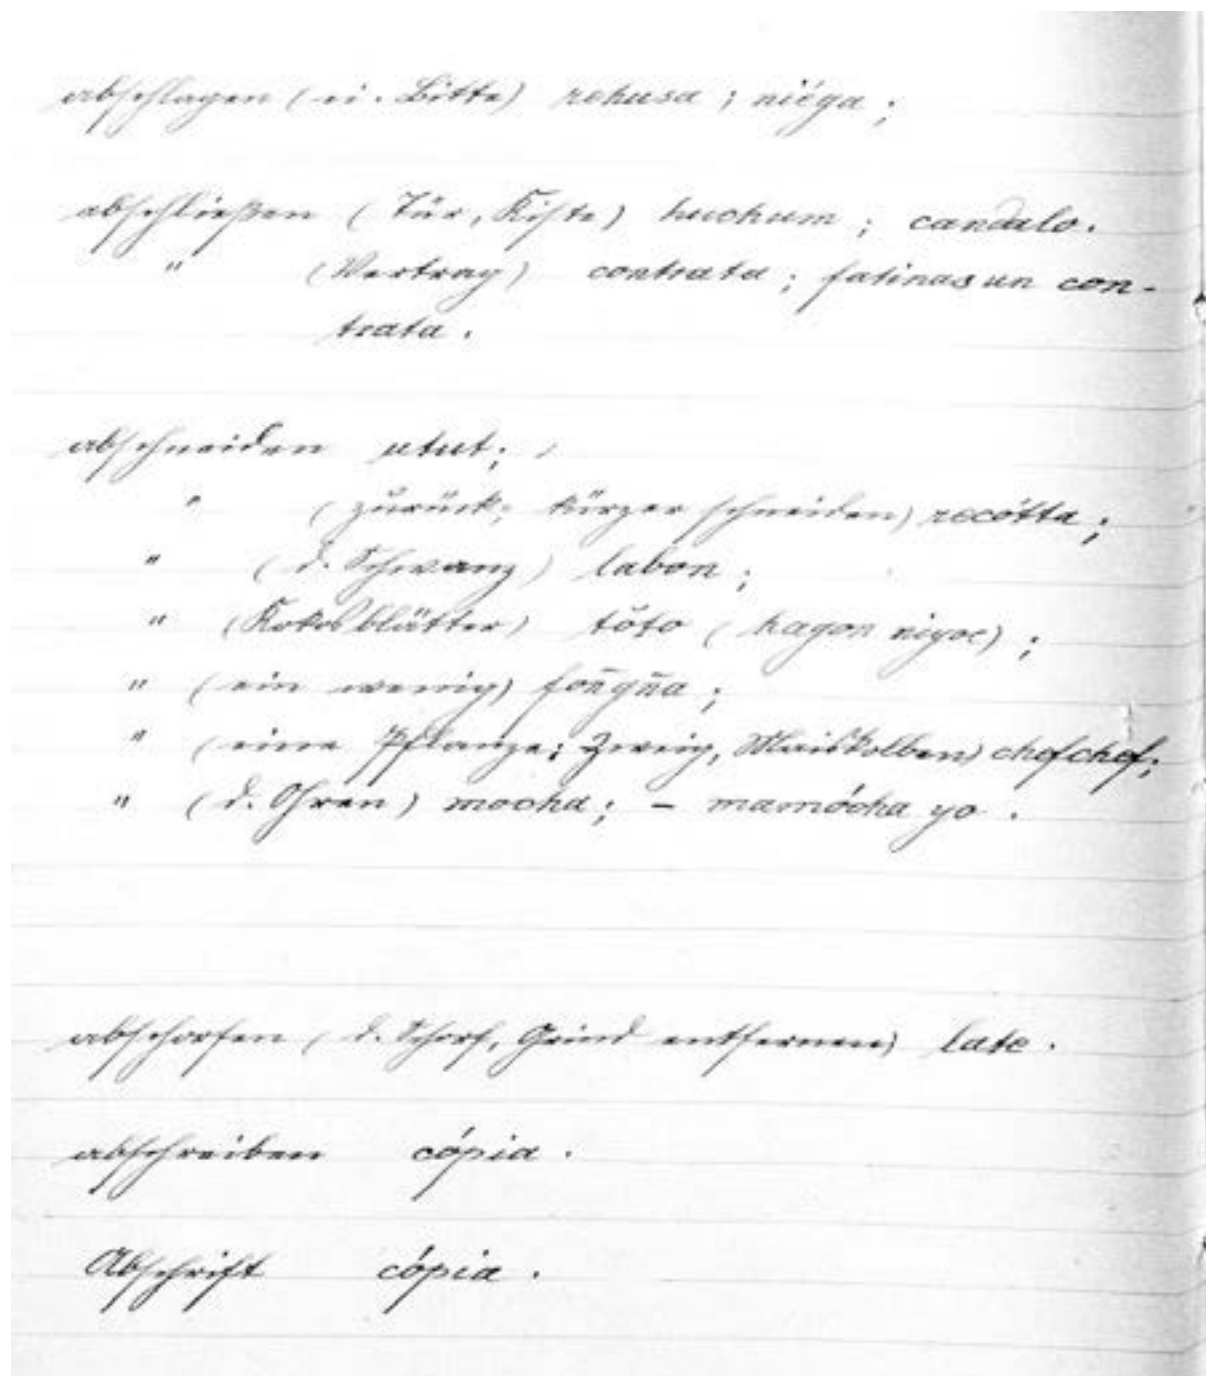 abschlagen (ei. Bitte) rehusa; niéga;
abschließen (Tür, Kiste) huchum; candalo.
" (Vertrag) contrata; fatinas un con-
trata.
abschneiden utut;
" (zurück; kürzer schneiden) recótta;
" (d. Schwanz) labon;
" (Kokosblätter) tŏto (hagon niyoc);
" (ein wenig) foñgña;
" (eine Pflanze; Zweig, Maiskolben) chefchef;
" (d. Ohren) mocha; - mamócha yo.
abschorfen (d. Schorf, Grind entfernen) late.
abschreiben cópia.
Abschrift cópia.